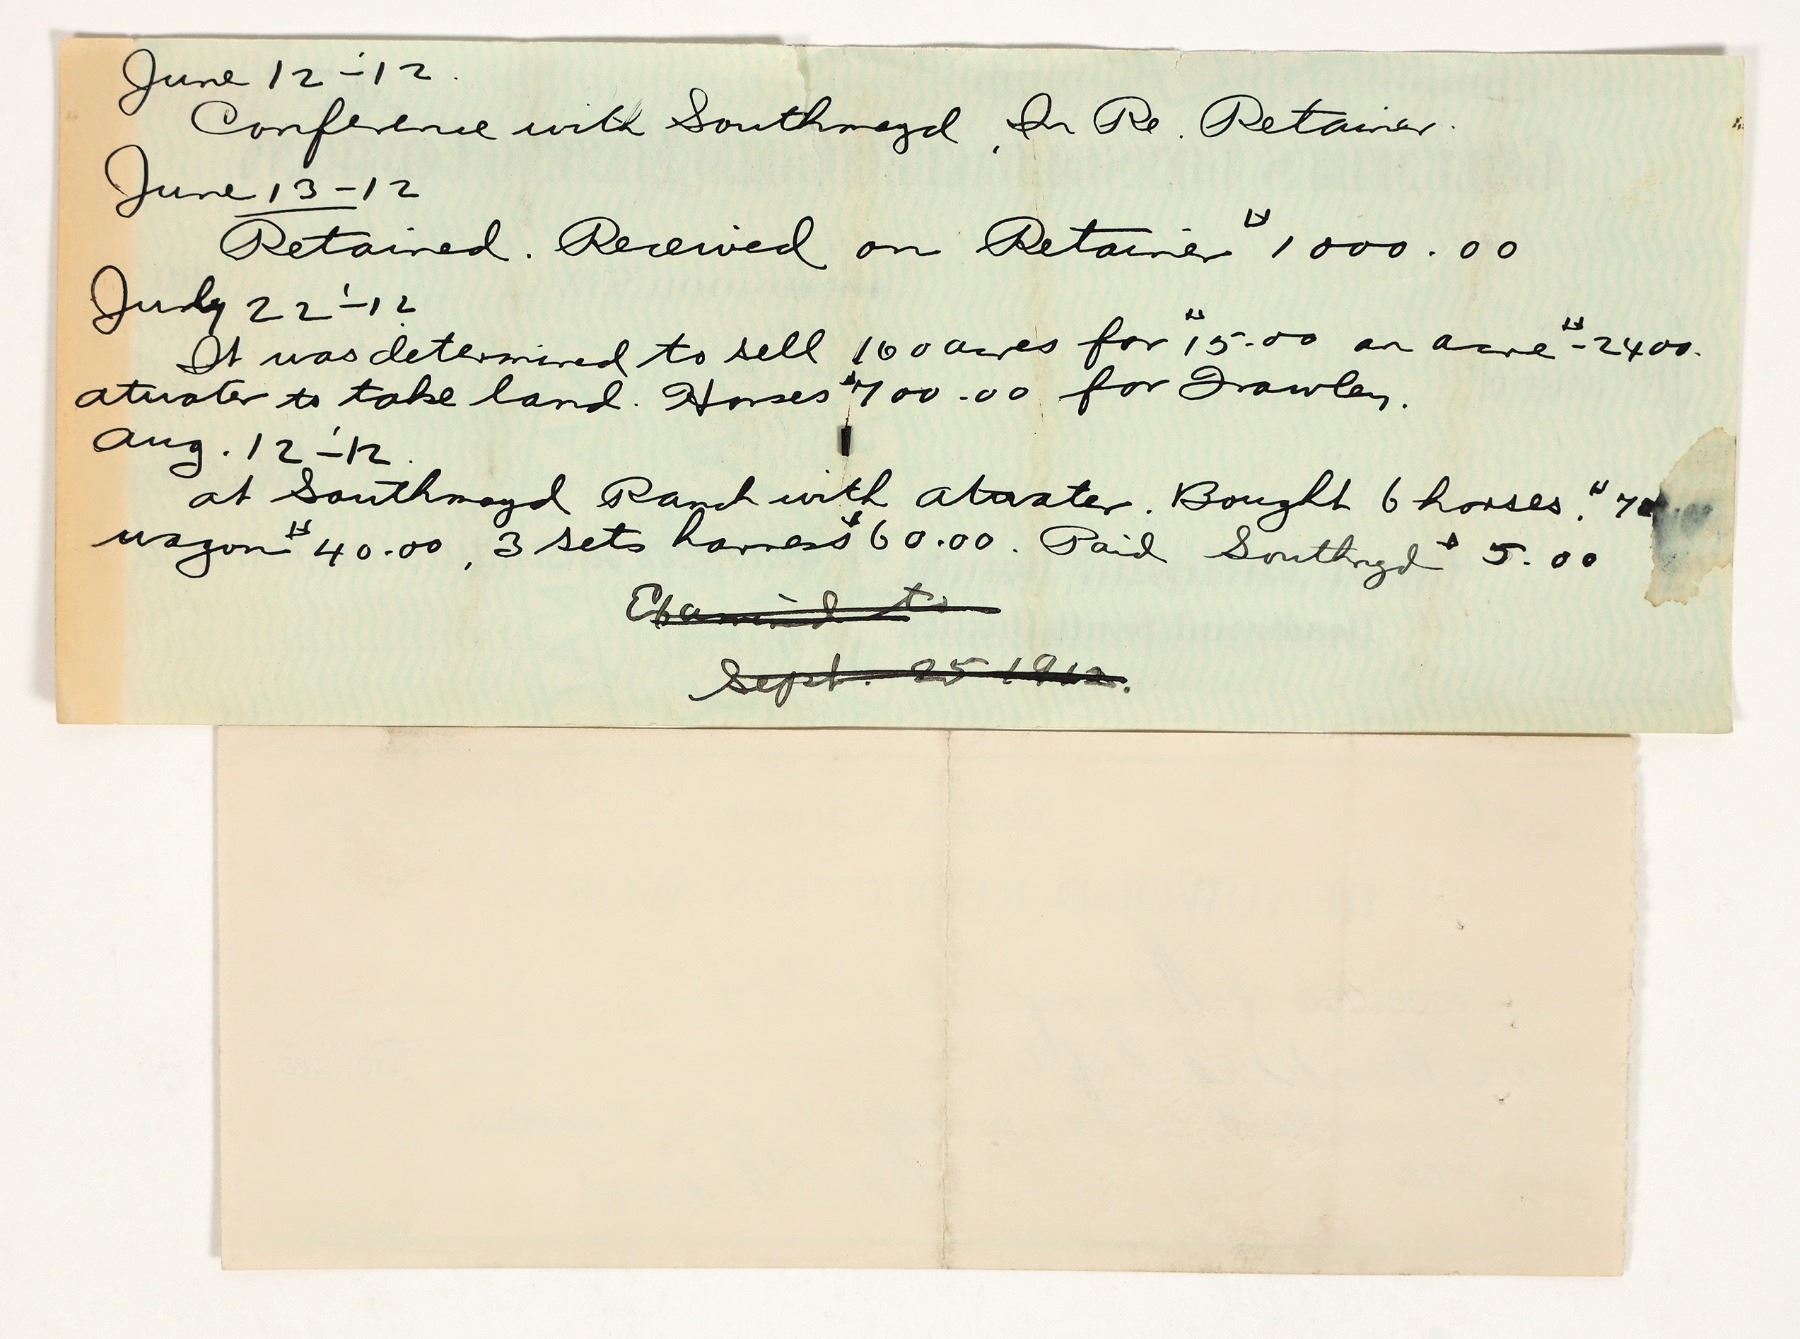 June 12-'12.
Conference with Southmayd, In Re. Retainer.
June 13-12
Retained. Received on Retainer $1000.00
July 22'-12
It was determined to sell 160 acres for $15.00 an acre $-2400.
atwater to take land. Horses $700.00 for Frawley.
Aug. 12'-12.
at Southmayd Ranch with atwater. Bought 6 horses, $700.00
wagon $40.00, 3 sets harness $60.00. Paid Southmyd $5.00
Examined to
Sept. 25 1912.